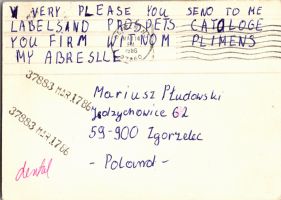 V VERY PLEASE YOU SEND TO ME
LABELSAND PROSPETS CATALOGE
YOU FIRM WITNOM PLIMENS
MY ABRESLLE
1986
37883 MAR 1786
37883 MAR 1786
Mariusz Płudowski
Jędrzychowice 62
59-900 Zgorzelec
- Poland -
dental